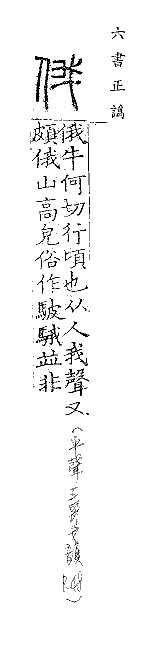 六書正譌
俄
俄牛何切行頃也从人我聲又
頗俄山高皃俗作駊騀並非
(平聲 韻 )